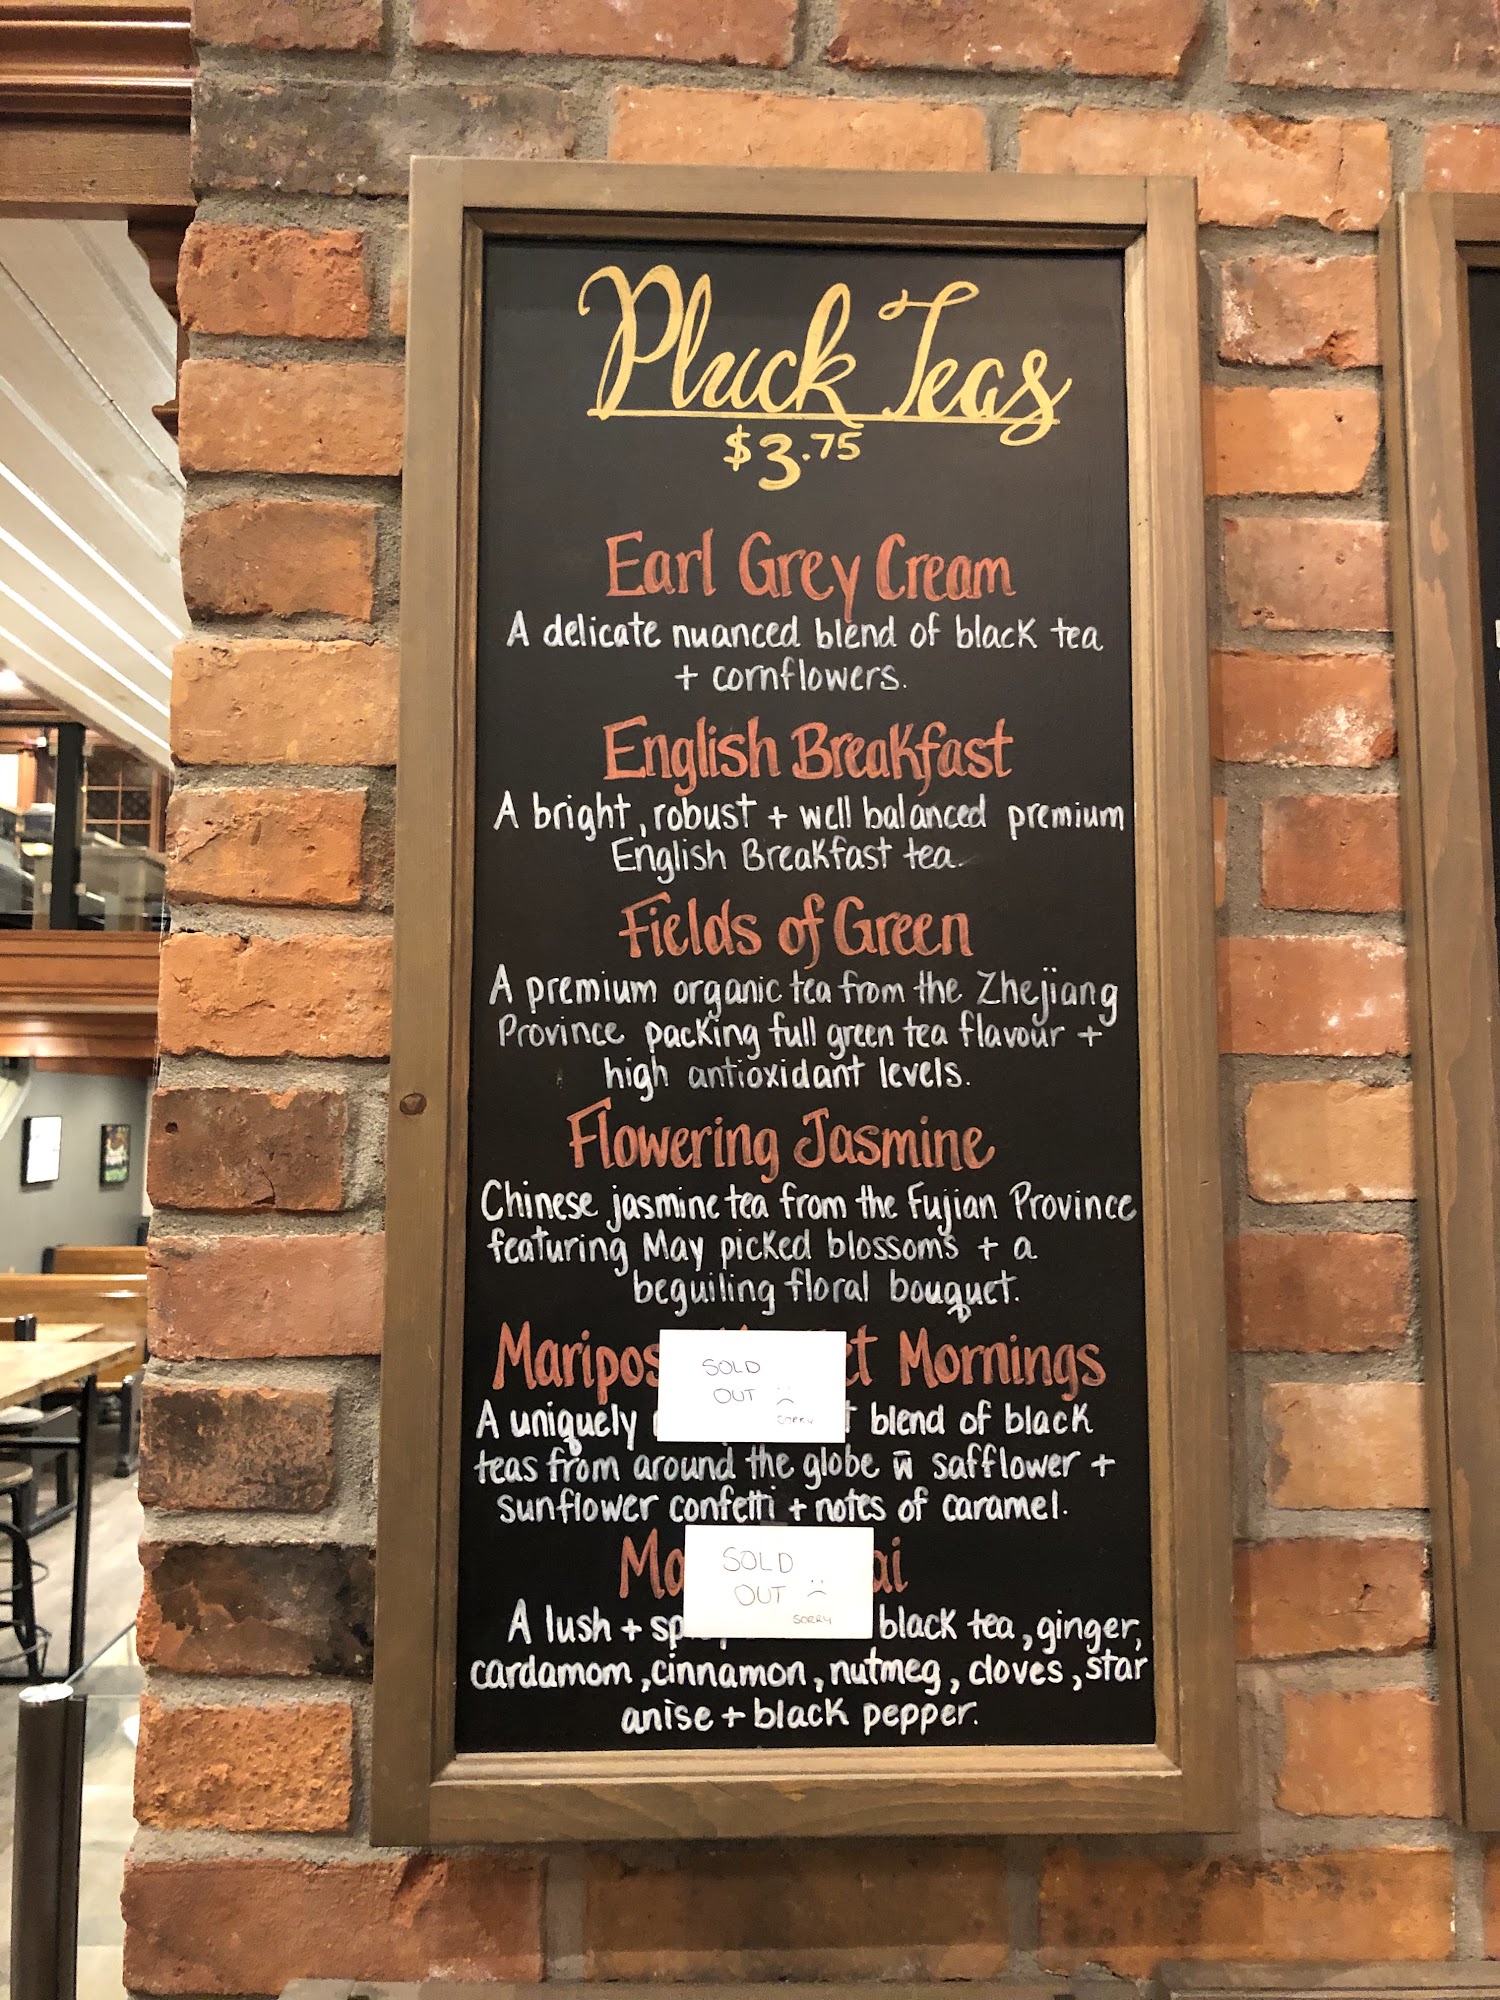 Pluck Teas
$3.75
Earl Grey Cream
A delicate nuanced blend of black tea
+ cornflowers.
English Breakfast
A bright, robust + well balanced premium
English Breakfast tea.
Fields of Green
A premium organic tea from the Zhejiang
Province packing full green tea flavour +
high antioxidant levels.
Flowering Jasmine
Chinese jasmine tea from the Fujian Province
featuring May picked blossoms + a
beguiling floral bouquet.
Mornings
SOLD
OUT
SORRY
A uniquely blend of black
teas from around the globe w̄ safflower +
sunflower confetti + notes of caramel.
SOLD
OUT
SORRY
A lush + black tea, ginger,
cardamom, cinnamon, nutmeg, cloves, star
anise + black pepper.